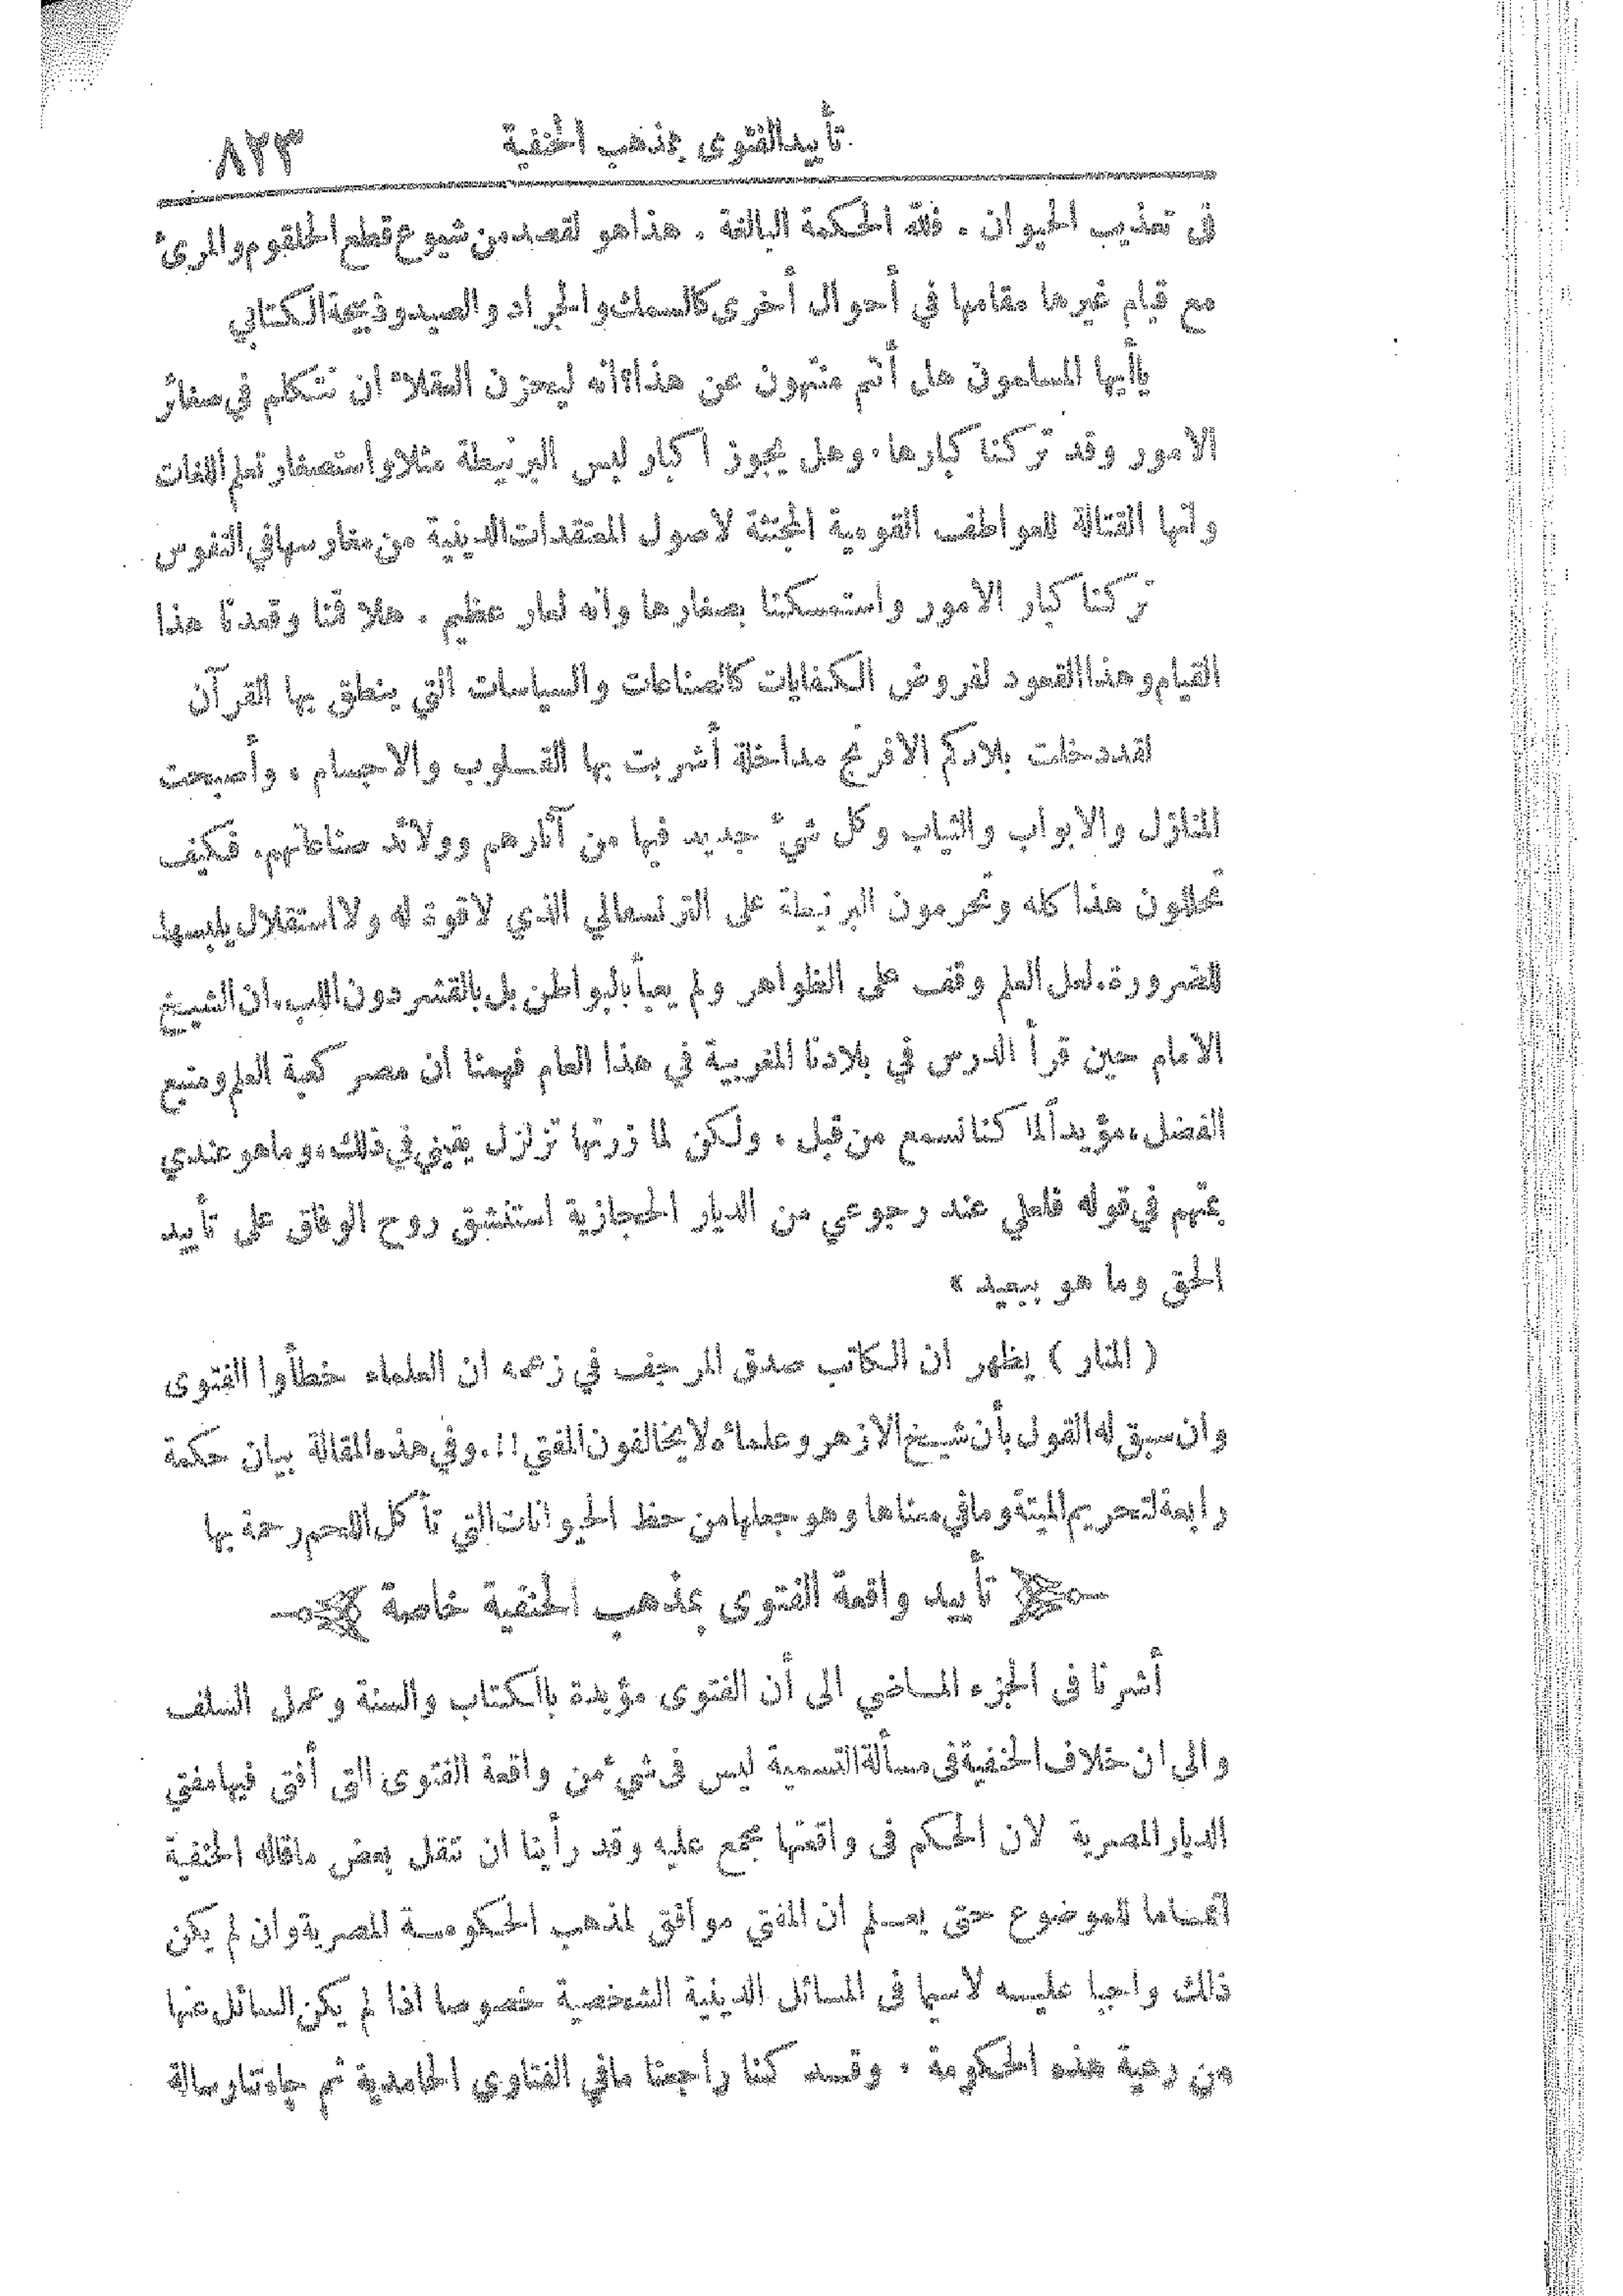 تأييد الفتوى بمذهب الحنفية ٨٢٣
في تعذيب الحيوان . فلله الحكمة البالغة . هذا هو لقصد من شيوع قطع الحلقوم والمرئ
مع قيام غيرها مقامها في أحوال أخرى كالسمك والجراد والصيد وذبيحة الكتابي
يا أيها المسلمون هل أنتم منتهون عن هذا؟ انه ليحزن العقلاء ان نتكلم في صغائر
الامور وقد تركنا كبارها . وهل يجوز اكبار لبس البرنيطة مثلا واستصغار تعلم اللغات
وانها القتالة للعواطف القومية المجتثة لاصول المعتقدات الدينية من مغارسها في النفوس
تركنا كبار الامور واستمسكنا بصغارها وانه لعار عظيم . هلا قمنا وقعدنا هذا
القيام وهذا القعود لفروض الكفايات كالصناعات والسياسات التي ينطق بها القرآن
لقد دخلت بلادكم الافرنج مداخلة أشربت بها القلوب والاجسام ، وأصبحت
المنازل والابواب والثياب وكل شيء جديد فيها من آثارهم وولائد صناعاتهم . فكيف
تحللون هذا كله وتحرمون البرنيطة على الترنسفالي الذي لا قوة له ولا استقلال يلبسها
للضرورة . لعل العلم وقف على الظواهر ولم يعبأ بالبواطن بل بالقشر دون اللب . ان الشيخ
الامام حين قرأ الدرس في بلادنا المغربية في هذا العام فهمنا ان مصر كعبة العلم ومنبع
الفضل ، مؤيداً لما كنا نسمع من قبل . ولكن لما زرتها تزلزل يقيني في ذلك ، وما هو عندي
بمتهم في قوله فلعلي عند رجوعي من الديار الحجازية استنشق روح الوفاق على تأييد
الحق وما هو ببعيد »
( المنار ) يظهر ان الكاتب صدق المرجف في زعمه ان العلماء خطأوا الفتوى
وان سبق له القول بأن شيخ الازهر وعلمائه لا يخالفون المفتي !! . وفي هذه المقالة بيان حكمة
رابعة لتحريم الميتة وما في معناها وهو جعلها من حظ الحيوانات التي تأكل اللحم رحمة بها
تأييد واقعة الفتوى بمذهب الحنفية خاصة
أشرنا في الجزء الماضي الى أن الفتوى مؤيدة بالكتاب والسنة وعمل السلف
والى ان خلاف الحنفية في مسألة التسمية ليس في شيء من واقعة الفتوى التي أفتى فيها مفتي
الديار المصرية لان الحكم في واقعتها مجمع عليه وقد رأينا ان ننقل بعض ما قاله الحنفية
اتماما للموضوع حتى يعلم ان المفتي موافق لمذهب الحكومة المصرية وان لم يكن
ذلك واجبا عليه لا سيما في المسائل الدينية الشخصية خصوصا اذا لم يكن السائل عنها
من رعية هذه الحكومة . وقد كنا راجعنا ما في الفتاوى الحامدية ثم جاءتنا رسالة